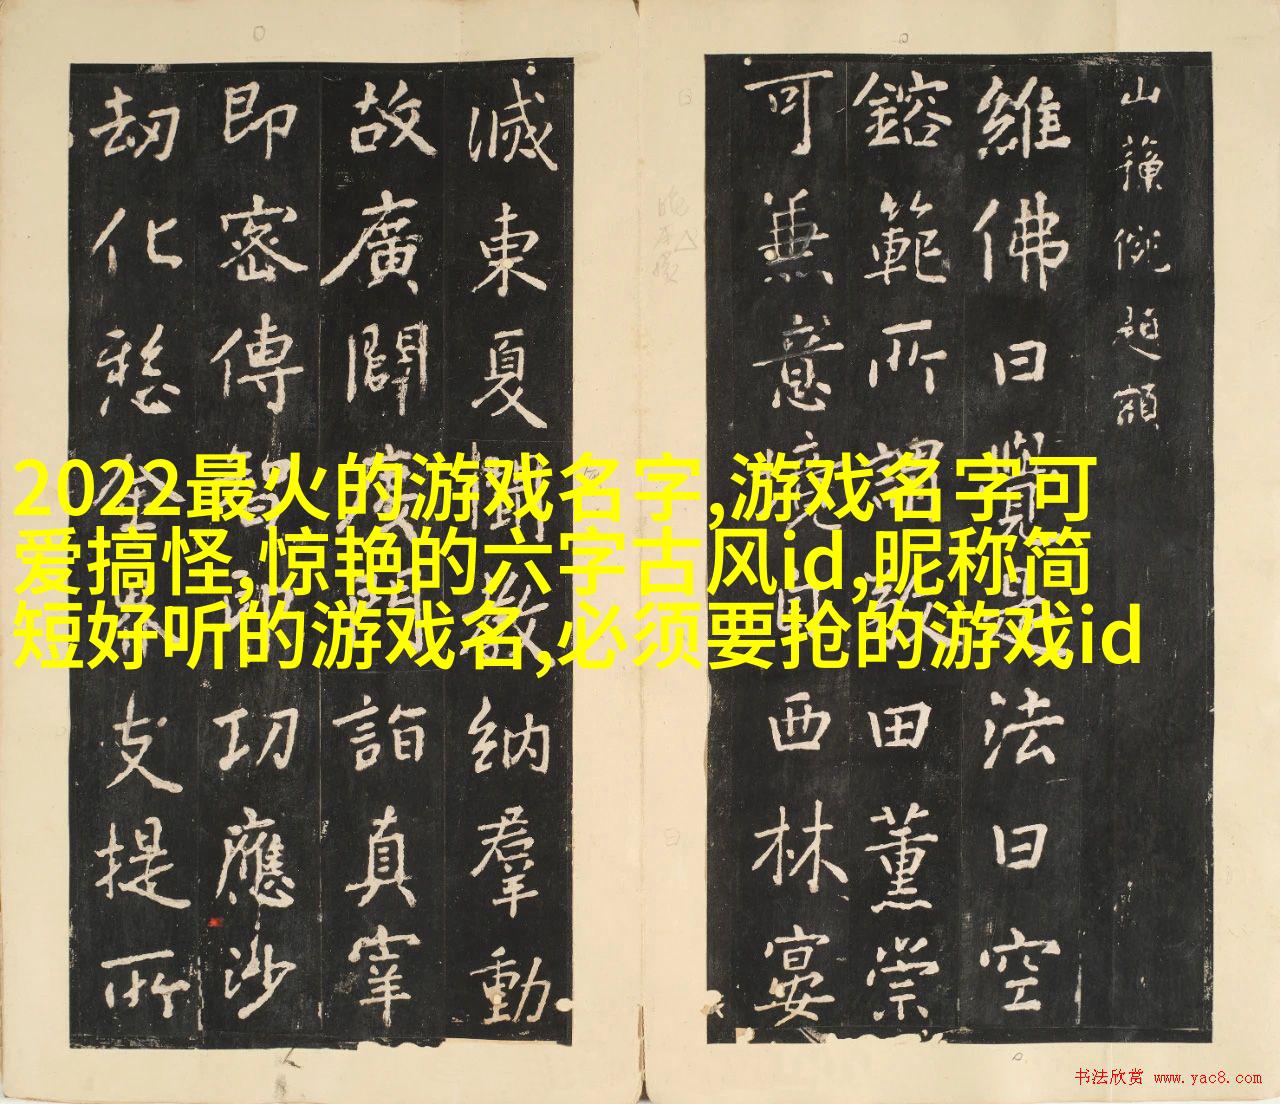 2022最火的游戏名字,游戏名字可
爱搞怪,惊艳的六字古风id,昵称简
短好听的游戏名,必须要抢的游戏id
山 額
維佛曰覺 法曰空
鎔範所謂 田薰崇
可兼意 西林宴
滅東夏 納羣動
故廣闢 詣真宰
即密傳 功應沙
劫化 支提所
书法欣赏 www.yac8.com